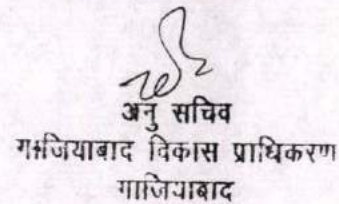 अनु सचिव
गाजियाबाद विकास प्राधिकरण
गाजियाबाद